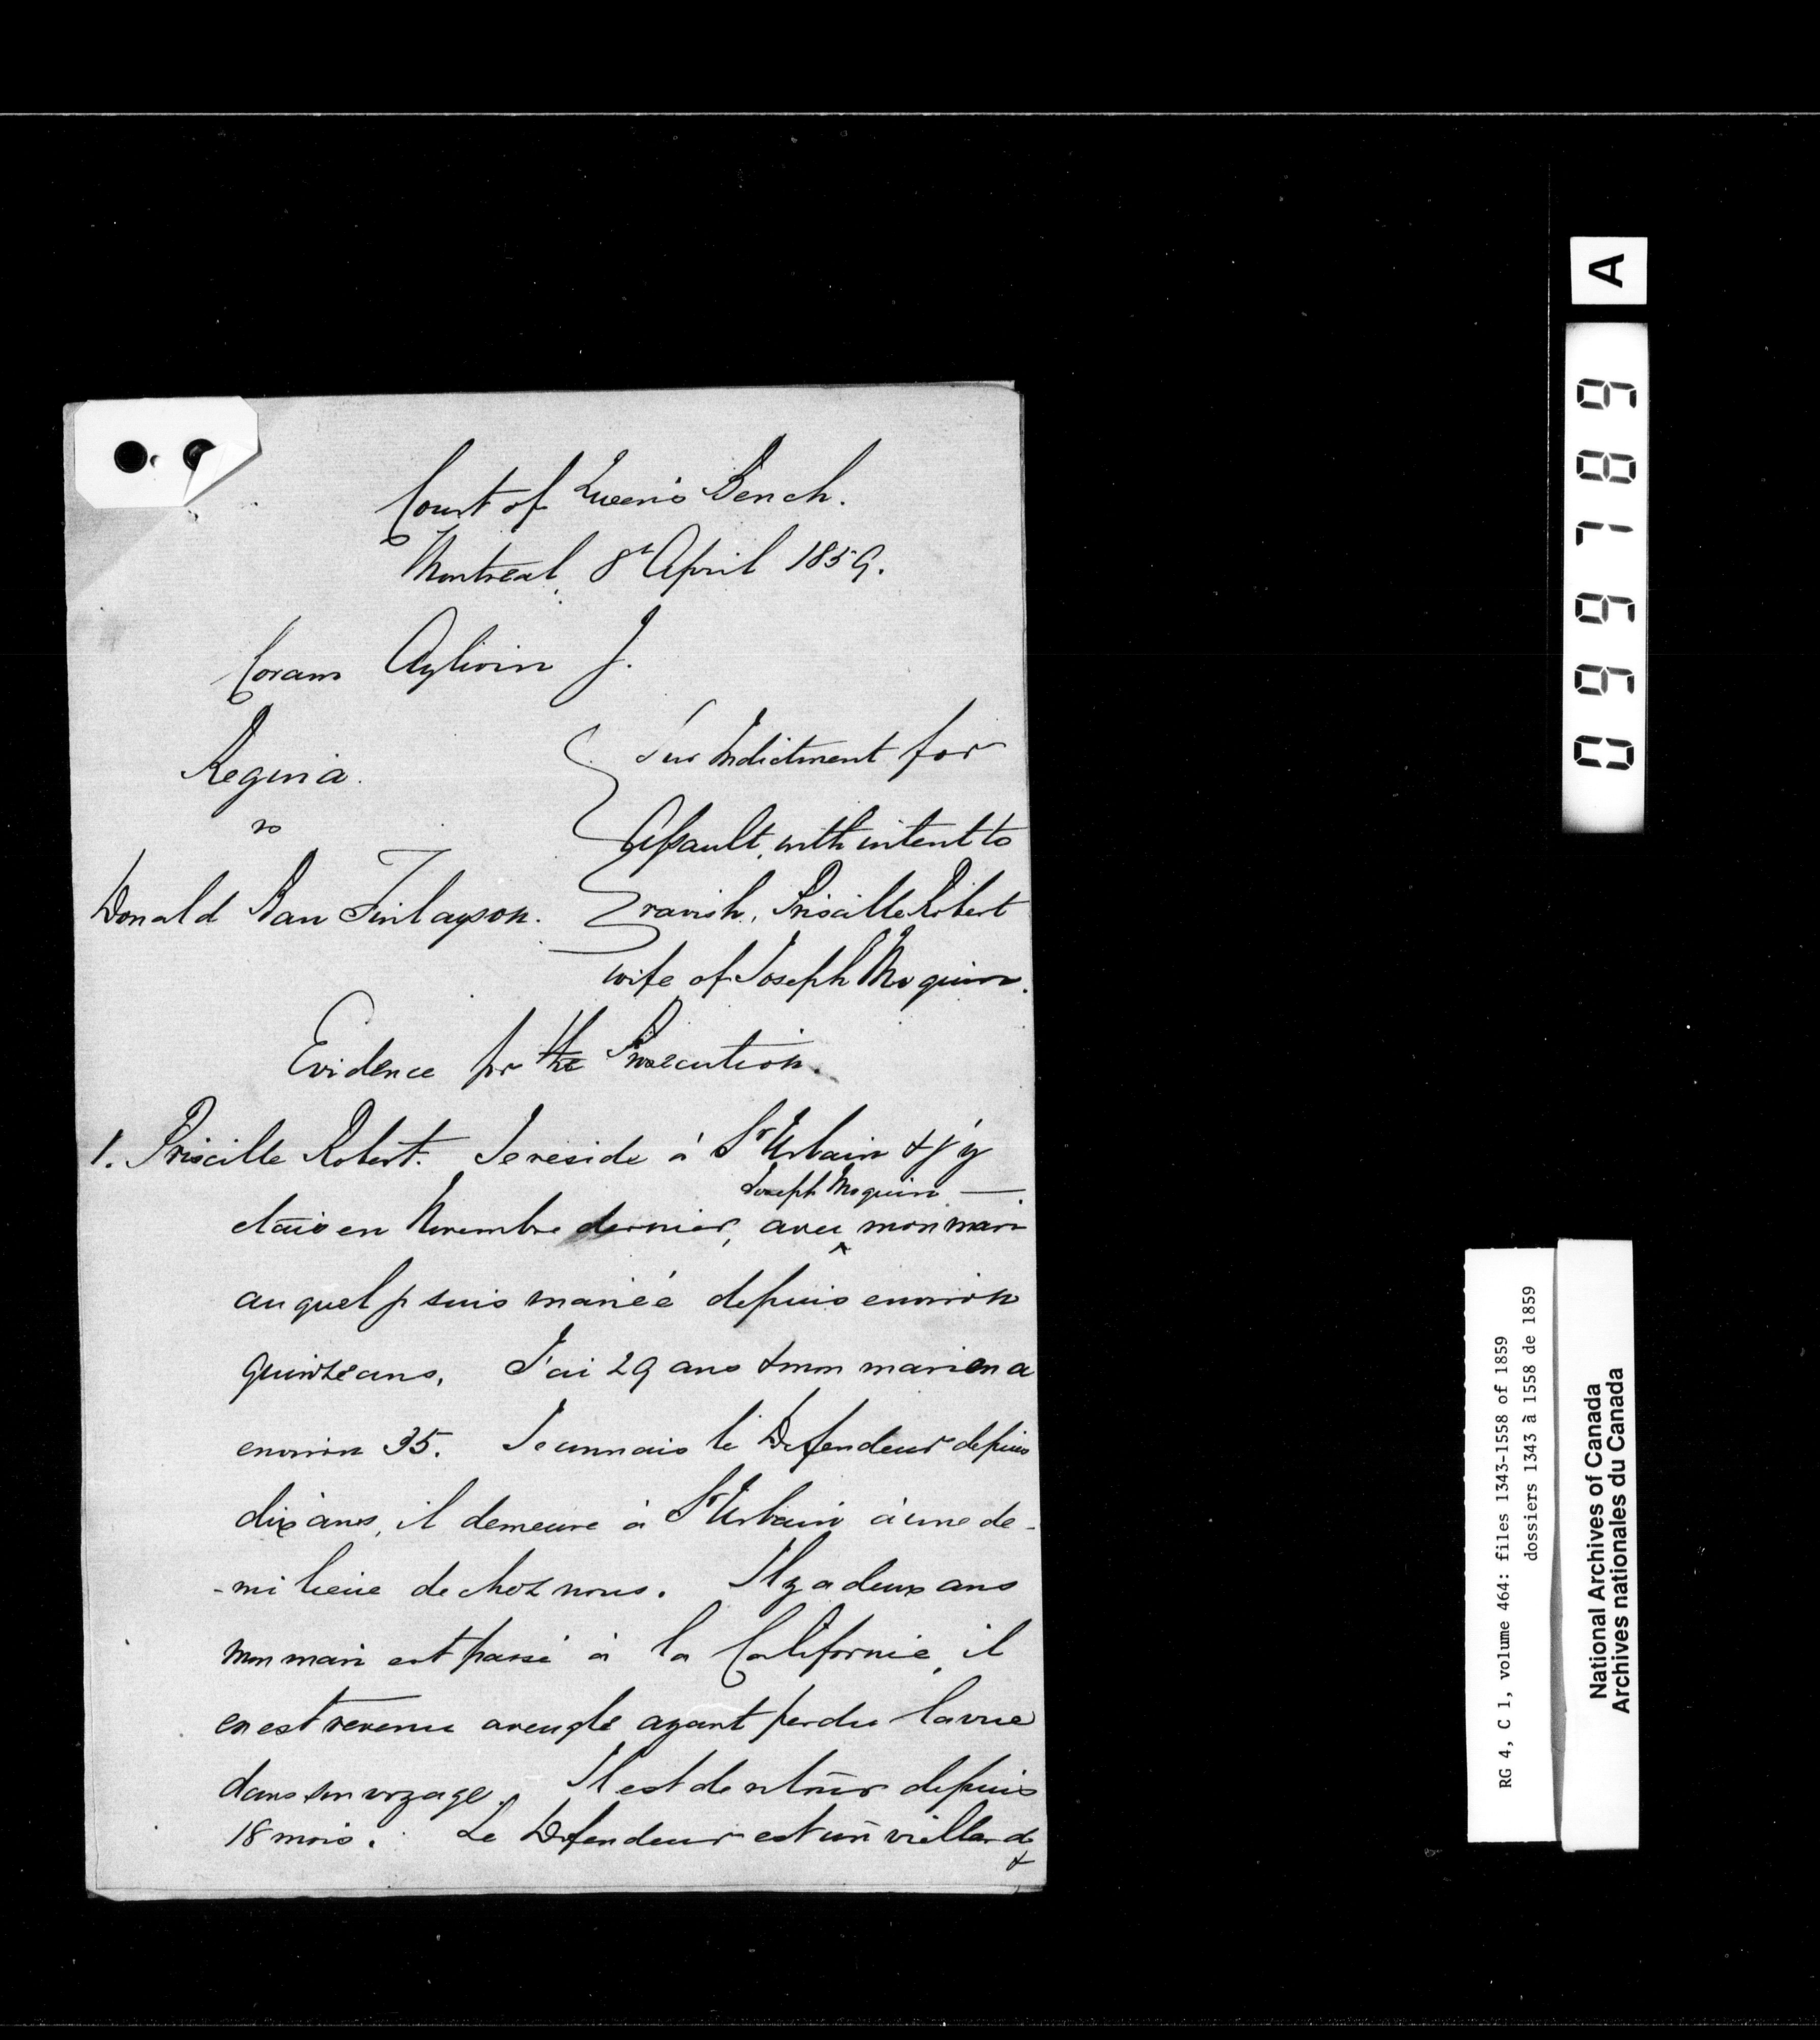 Court of Queen's Bench.
Montreal, 8t April 1859.
Coram Aylwin J.
Regina
vs
Donald Ban Finlayson.
Sur Indictment for
Assault, with intent to
ravish, Priscille Robert
wife of Joseph Moquin.
Evidence for the Prosecution.
1. Priscille Robert. Je reside à St Urbain & j'y
Joseph Moquin —
etais en Novembre dernier, avec ^ mon mari
auquel je suis mariée depuis environ
quinze ans. J'ai 29 ans & mon mari en a
environ 35. Je connais le Defendeur depuis
dix ans, il demeure à St Urbain à une de-
-mi lieue de chez nous. Il y a deux ans
mon mari est passé à la Californie, il
en est revenu aveugle ayant perdu la vue
dans son voyage. Il est de retour depuis
18 mois. Le Defendeur est un viellard
&
A
099789
RG 4, C 1, volume 464: files 1343-1558 of 1859
dossiers 1343 à 1558 de 1859
National Archives of Canada
Archives nationales du Canada